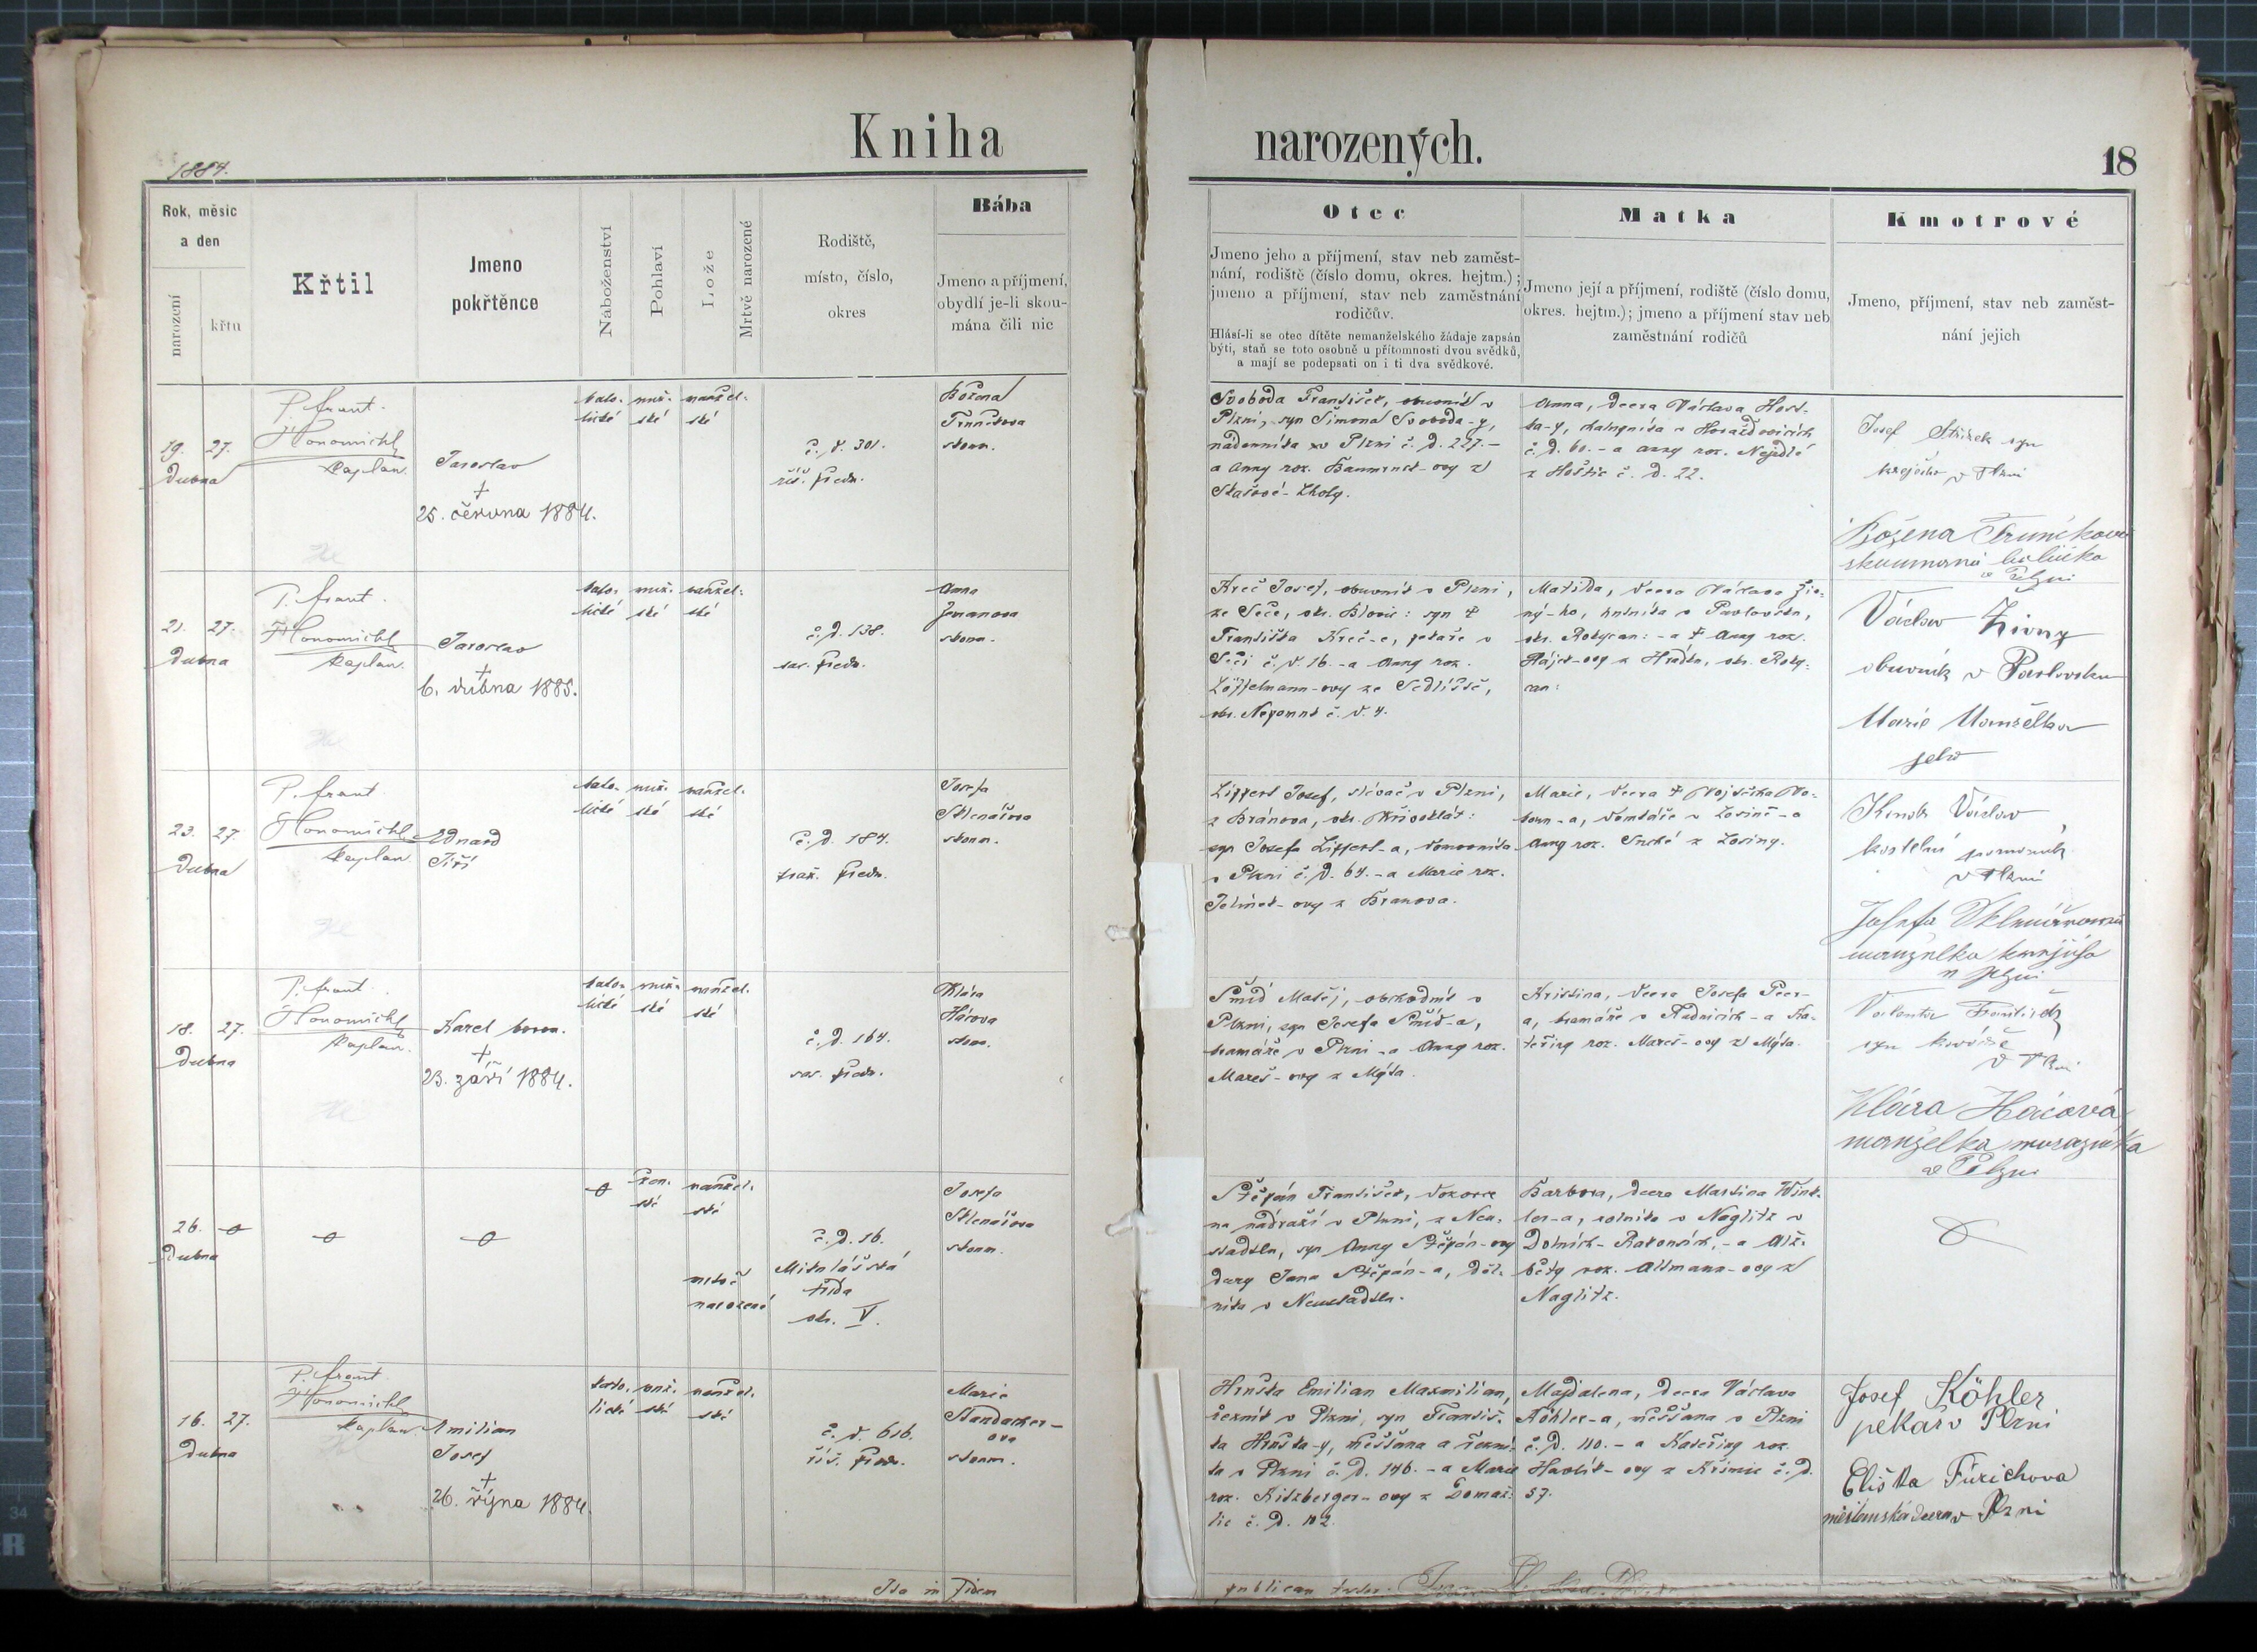 Kniha
narozených.
1884.
18
Rok, měsíc
a den
narození
křtu
Křtil
Jmeno
pokřtěnce
Náboženství
Pohlaví
Lože
Mrtvě narozené
Rodiště,
místo, číslo,
okres
Bába
Jmeno a příjmení,
obydlí je-li skou-
mána čili nic
Otec
Jmeno jeho a příjmení, stav neb zaměst-
nání, rodiště (číslo domu, okres. hejtm.);
jmeno a příjmení, stav neb zaměstnání
rodičův.
Hlásí-li se otec dítěte nemanželského žádaje zapsán
býti, staň se toto osobně u přítomnosti dvou svědků,
a mají se podepsati on i ti dva svědkové.
Matka
Jmeno její a příjmení, rodiště (číslo domu,
okres. hejtm.); jmeno a příjmení stav neb
zaměstnání rodičů
Kmotrové
Jmeno, příjmení, stav neb zaměst-
nání jejich
19. 27.
dubna
P. frant.
Honomichl
kaplan.
Jaroslav
+
25. června 1884.
kato-
lické
muž-
ské
manžel-
ské
č. d. 301.
říš. předm.
Božena
skoum.
Svoboda František, obuvník v
Plzni, syn Šimona Svoboda-y,
nádenníka v Plzni č. d. 227. –
a Anny roz. z
Lhoty.
Anna, dcera Václava
v Horažďovicích
č. d. 60. – a Anny roz. Nejedlé
z Hoštic č. d. 22.
Josef syn
krejčího v Plzni
Božena Trunečkova
skoumaná babička
v Plzni
21. 27.
dubna
P. frant.
Honomichl
kaplan.
Jaroslav
+
6. dubna 1885.
kato-
lické
muž-
ské
manžel-
ské
č. d. 138.
sas. předm.
Anna
Zemanova
skoum.
Kreč Josef, obuvník v Plzni,
ze Seče, okr. Blovic: syn †
Františka Kreč-e, pekaře v
Seči č. d. 16. – a Anny roz.
Löffelmann-ovy ze Sedliště,
okr. Nepomuk č. d. 4.
Matilda, dcera Václava Živ-
ný-ho, v Pavlovsku,
okr. Rokycan: – a † Anny roz.
Hájek-ovy z Hrádku, okr. Roky-
can:
Václav Živny
obuvník v Pavlovsku
Marie Manželka
jeho
23. 27.
dubna
P. frant.
Honomichl
kaplan.
Eduard
Jiří
kato-
lické
muž-
ské
manžel-
ské
č. d. 184.
praž. předm.
Josefa
Sklenářova
skoum.
Lippert Josef, slévač v Plzni,
z Bránova, okr. Křivoklát:
syn Josefa Lippert-a, domovníka
v Plzni č. d. 64. – a Marie roz.
Jelínek-ovy z Branova.
Marie, dcera † Vojtěcha
domkáře v Losině – a
Anny roz. Suché z Losiny.
Václav
kostelní pomocník
v Plzni
Josefa Sklenářowa
manželka
w Plzni
18. 27.
dubna
P. frant.
Honomichl
kaplan.
Karel
+
23. září 1884.
kato-
lické
muž-
ské
manžel-
ské
č. d. 164.
sas. předm.
Klára
Hácova
skoum.
Šmíd Matěj, obchodník v
Plzni, syn Josefa Šmíd-a,
kramáře v Plzni – a Anny roz.
Mareš-ovy z Mýta.
Kristina, dcera Josefa Peer-
a, kramáře v Radnicích – a Ka-
teřiny roz. Mareš-ovy z Mýta.
Valenta František
syn kováře
v Plzni
Klára Hácová,
manželka
v Plzni
26.
dubna
žen-
ské
manžel-
ské
mrtvě
narozené
č. d. 16.
Mikulášská
třída
okr. V.
Josefa
Sklenářova
skoum.
Štěpán František,
na nádraží v Plzni, z Neu-
stadtlu, syn Anny Štěpán-ovy
dcery Jana Štěpán-a, děl-
níka v Neustadtlu.
Barbora, dcera Martina Wink-
ler-a, rolníka v Naglitz v
Dolních-Rakousích, – a Alž-
běty roz. Altmann-ovy z
Naglitz.
16. 27.
dubna
P. frant.
Honomichl
kaplan.
Emilian
Josef
+
26. října 1884.
kato-
lické
muž-
ské
manžel-
ské
č. d. 616.
říš. předm.
Marie
Standacher-
ova
skoum.
Hruška Emilian Maxmilian,
řezník v Plzni, syn Františ-
ka Hruška-y, měšťana a řezní-
ka v Plzni č. d. 146. – a Marie
roz. Kitzberger-ovy z Domaž-
lic č. d. 102.
Majdalena, dcera Václava
Köhler-a, měšťana v Plzni
č. d. 110. – a Kateřiny roz.
Havlík-ovy z Křimic č. d.
57.
Josef Köhler
pekař v Plzni
Eliška Fürichova
měšťanská dcera v Plzni
Ita in fidem
publicam